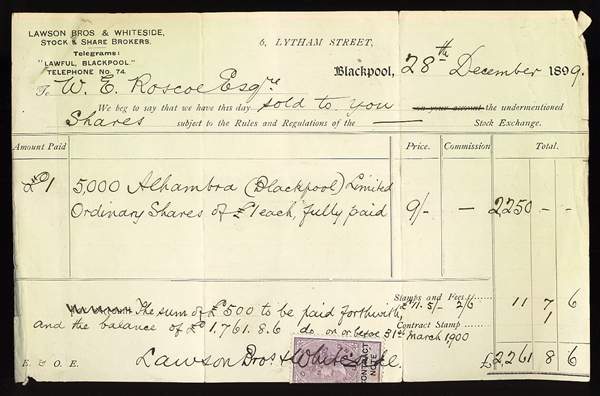 LAWSON BROS & WHITESIDE,
STOCK & SHARE BROKERS.
Telegrams:
"LAWFUL, BLACKPOOL."
TELEPHONE No. 74.
6, LYTHAM STREET,
Blackpool, 28th December 1899.
To W. E. Roscoe Esqre
We beg to say that we have this day sold to you on your account the undermentioned
Shares subject to the Rules and Regulations of the Stock Exchange.
Amount Paid Price. Commission Total.
£1 5,000 Alhambra (Blackpool) Limited
Ordinary Shares of £1 each, fully paid 9/- — 2250 - -
Stamps and Fees £11.5/- 2/6 11 7 6
The sum of £500 to be paid forthwith,
and the balance of £1,761.8.6 do. on or before 31st March 1900
Contract Stamp 1
E. & O. E. Lawson Bros & Whiteside. £2,261 8 6
CONTRACT NOTE